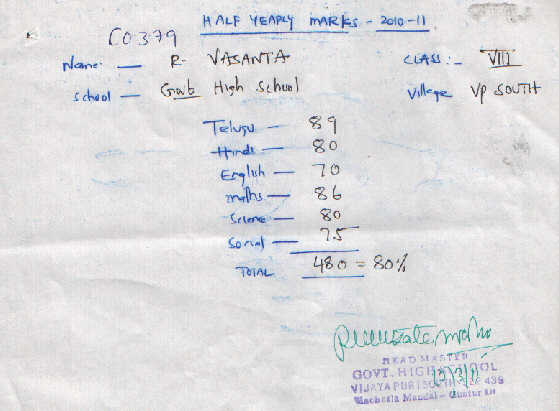 HALF YEARLY MARKS - 2010-11
C0379
Name: — R. VASANTA CLASS:- VIII
School — Govt High School Village VP SOUTH
Telugu — 89
Hindi — 80
English — 70
maths — 86
Science — 80
Social — 75
TOTAL 480 = 80%
HEAD MASTER
GOVT. HIGH SCHOOL
VIJAYAPURI SOUTH 439
Macherla Mandal - Guntur Dt